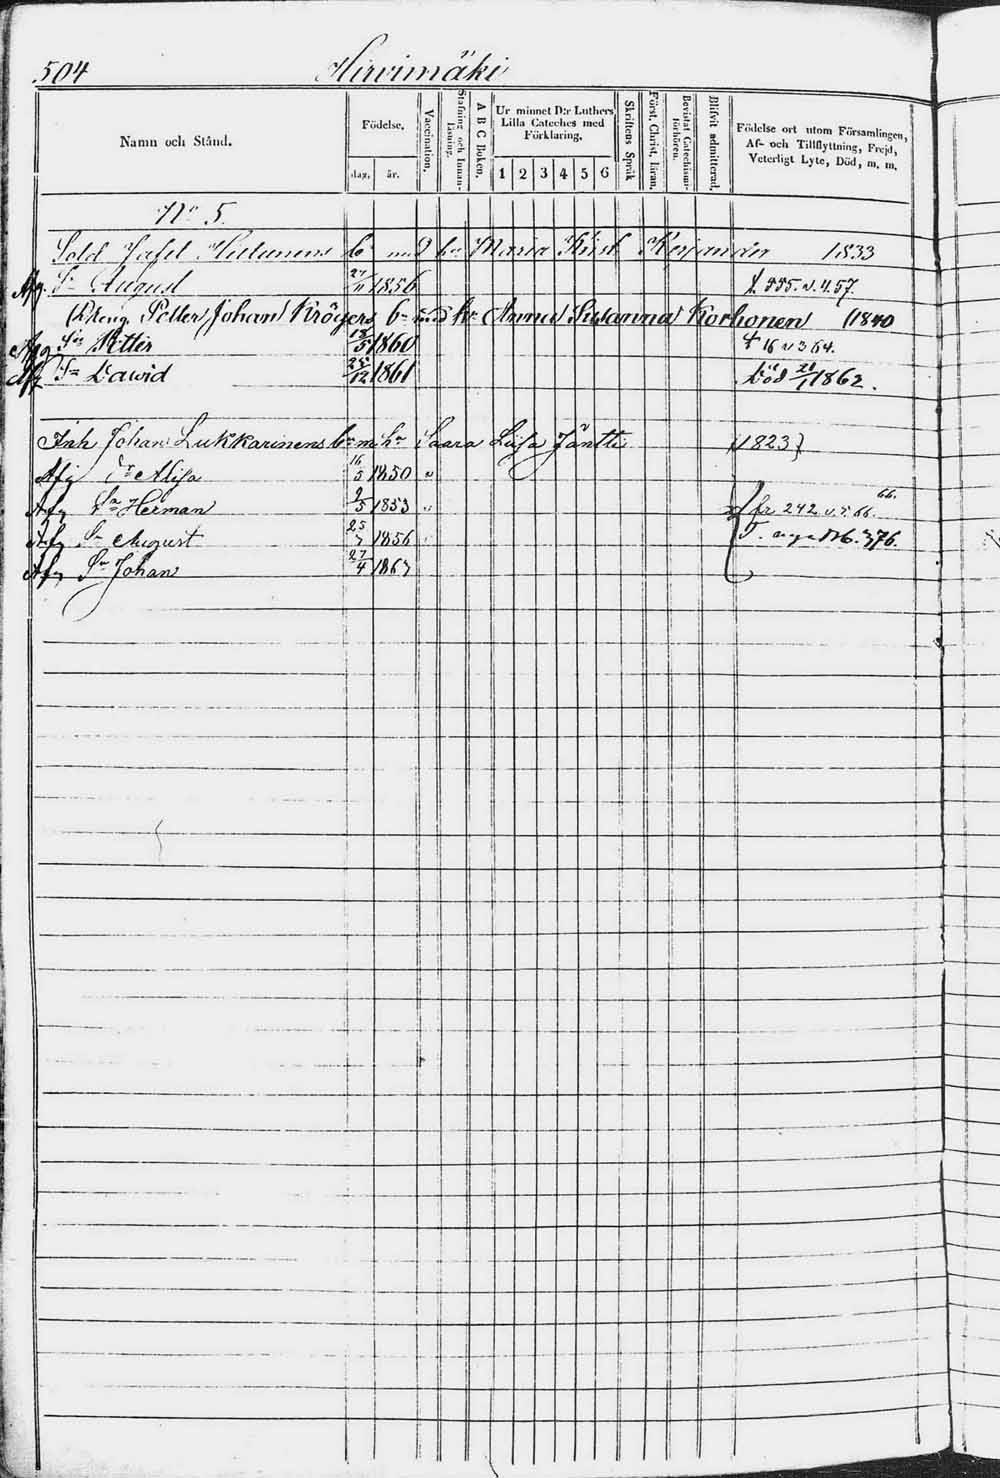 504 Hirvimäki
Namn och Stånd. Födelse. dag. år. Vaccination. Stafning och Innan-läsning. A B C Boken. Ur minnet D:r Luthers Lilla Cateches med Förklaring. 1 2 3 4 5 6 Skriftens Språk Först. Christ. läran. Bevistat Catechismi-förhören. Blifvit admitterad. Födelse ort utom Församlingen, Af- och Tillflyttning, Frejd, Veterligt Lyte, Död, m. m.
No 5.
Sold Hutunens b med hu Maria Kirst 1833
Afg. Sn August 27/11 1856 f. 995. v. 4. 57.
Dreng Petter Johan Krögers bn med hr Anna Susanna Korhonen (1840
Afg Sn Petter /5 1860 f 16 v 3 64.
Afg Sn Dawid 25/12 1861 Död 1862.
Inh Johan Lukkarinens bn m hr Saara Lüsa Jäntti (1823)
Afg Dr Alisa 16/5 1850 "
Afg Sn Herman 2/5 1853 " fr 242 v. 66. 66.
Afg Sn August 25/7 1856 T. 376.
Afg Sn Johan 27/4 1867